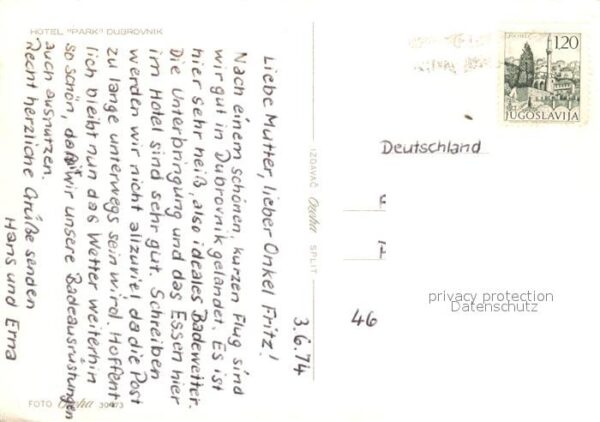 HOTEL "PARK" DUBROVNIK
3.6.74
Liebe Mutter, lieber Onkel Fritz!
Nach einem schönen, kurzen Flug sind
wir gut in Dubrovnik gelandet. Es ist
hier sehr heiß, also ideales Badewetter.
Die Unterbringung und das Essen hier
im Hotel sind sehr gut. Schreiben
werden wir nicht allzuviel da die Post
zu lange unterwegs sein wird. Hoffent
lich bleibt nun das Wetter weiterhin
so schön, damit wir unsere Badeausrüstungen
auch ausnutzen.
Recht herzliche Grüße senden
Hans und Erna
FOTO
IZDAVAČ
SPLIT
1.20
JUGOSLAVIJA
Deutschland
46
privacy protection
Datenschutz